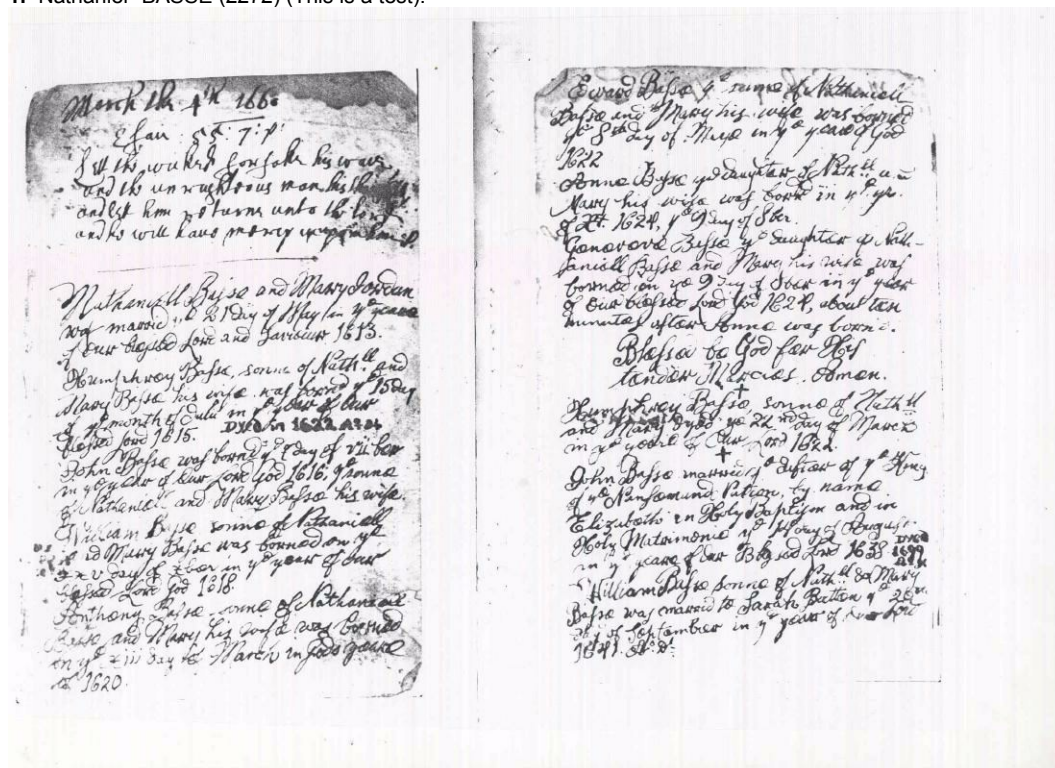 Nathaniel BASSE (2272) (This is a test).
March the 4th 166
Esau: 55: 7: v:
Let the wicked forsake his ways
and the unrighteous man his
and let him returne unto the lord
and he will have mercy uppon him
Nathaniell Basse and Mary Jordan
was married ye 21 day of May in ye yeare
of our blessed Lord and Saviour 1613.
Humphrey Basse, sonne of Nath:ll and
Mary Basse his wife was borned ye 15 day
of ye month of July in ye year of Our
blessed Lord 1615. Dyed in 1622
John Basse was borned ye 7 day of vii ber
in ye year of Our Lord God 1616, ye sonne
of Nathaniell and Mary Basse his wife.
William Basse sonne of Nathaniell
and Mary Basse was borned on ye
xxv day of Xber in ye year of Our
blessed Lord God 1618.
Anthony Basse, sonne of Nathaniell
Basse and Mary his wife was borned
on ye xiii day of March in Gods yeare
1620.
Edward Basse ye sonne of Nathaniell
Basse and Mary his wife was borned
ye 8th day of in ye yeare of God
1622
Anna Basse ye daughter of Nath:ll
Mary his wife was born in ye yr.
of Xt. 1624, ye 9 day of 8ber.
Geneveve Basse ye daughter of Nath-
aniell Basse and Mary his wife was
borned on ye 9 day of 8ber in ye year
of Our blessed Lord God 1624, about ten
minutes after Anna was borne.
Blessed be God for His
tender Mercies. Amen.
Humphrey Basse sonne of Nath:ll
and Mary dyed ye 22nd day of March
in ye yeare of Our Lord 1622.
John Basse married ye of ye King
of ye Nansemund Nation, by name
Elizabeth in Holy Baptism and in
Holy Matrimonie ye 14 day of August
in ye yeare of Our Blessed Lord 1638 Dyed
1699
William Basse sonne of Nath:ll & Mary
Basse was married to Sarah Batten ye 20
day of September in ye year of Our Lord
1641. A: D: